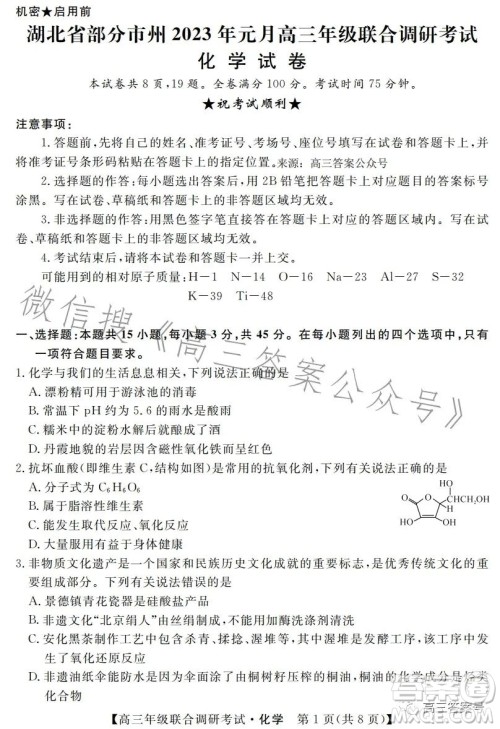 机密★启用前
湖北省部分市州2023年元月高三年级联合调研考试
化学试卷
本试卷共8页,19题。全卷满分100分。考试时间75分钟。
★祝考试顺利★
注意事项:
1.答题前,先将自己的姓名、准考证号、考场号、座位号填写在试卷和答题卡上,并
将准考证号条形码粘贴在答题卡上的指定位置。来源:高三答案公众号
2.选择题的作答:每小题选出答案后,用2B铅笔把答题卡上对应题目的答案标号
涂黑。写在试卷、草稿纸和答题卡上的非答题区域均无效。
3.非选择题的作答:用黑色签字笔直接答在答题卡上对应的答题区域内。写在试
卷、草稿纸和答题卡上的非答题区域均无效。
4.考试结束后,请将本试卷和答题卡一并上交。
可能用到的相对原子质量:H-1 N-14 O-16 Na-23 Al-27 S-32
K-39 Ti-48
一、选择题:本题共15小题,每小题3分,共45分。在每小题列出的四个选项中,只有
一项符合题目要求。
1.化学与我们的生活息息相关,下列说法正确的是
A.漂粉精可用于游泳池的消毒
B.常温下pH约为5.6的雨水成酸雨
C.糯米中的淀粉水解后就酿成了酒
D.丹霞地貌的岩层因含磁性氧化铁而呈红色
2.抗坏血酸(即维生素C,结构如图)是常用的抗氧化剂,下列有关说法正确的是
A.分子式为C₆H₆O₆
B.属于脂溶性维生素
C.能发生取代反应、氧化反应
D.难溶于水,易溶于乙醇
HO
CHCH₂OH
O
O
HO OH
3.非物质文化遗产是一个国家和民族历史文化成就的重要标志,是优秀传统文化的重
要组成部分。下列有关说法错误的是
A.景德镇青花瓷器是硅酸盐产品
B.非遗文化“北京绢人”由丝绢制成,不能用加酶洗涤剂清洗
C.安化黑茶制作工艺中包含杀青、揉捻、渥堆等,其中渥堆是发酵工序,该工序应
D.非遗油纸伞能防水是因为伞面涂了由桐树籽压榨所得的桐油,桐油的化学成分是烃类
化合物
微信搜《高三答案公众号》
【高三年级联合调研考试·化学 第1页(共8页)】
高三答案号